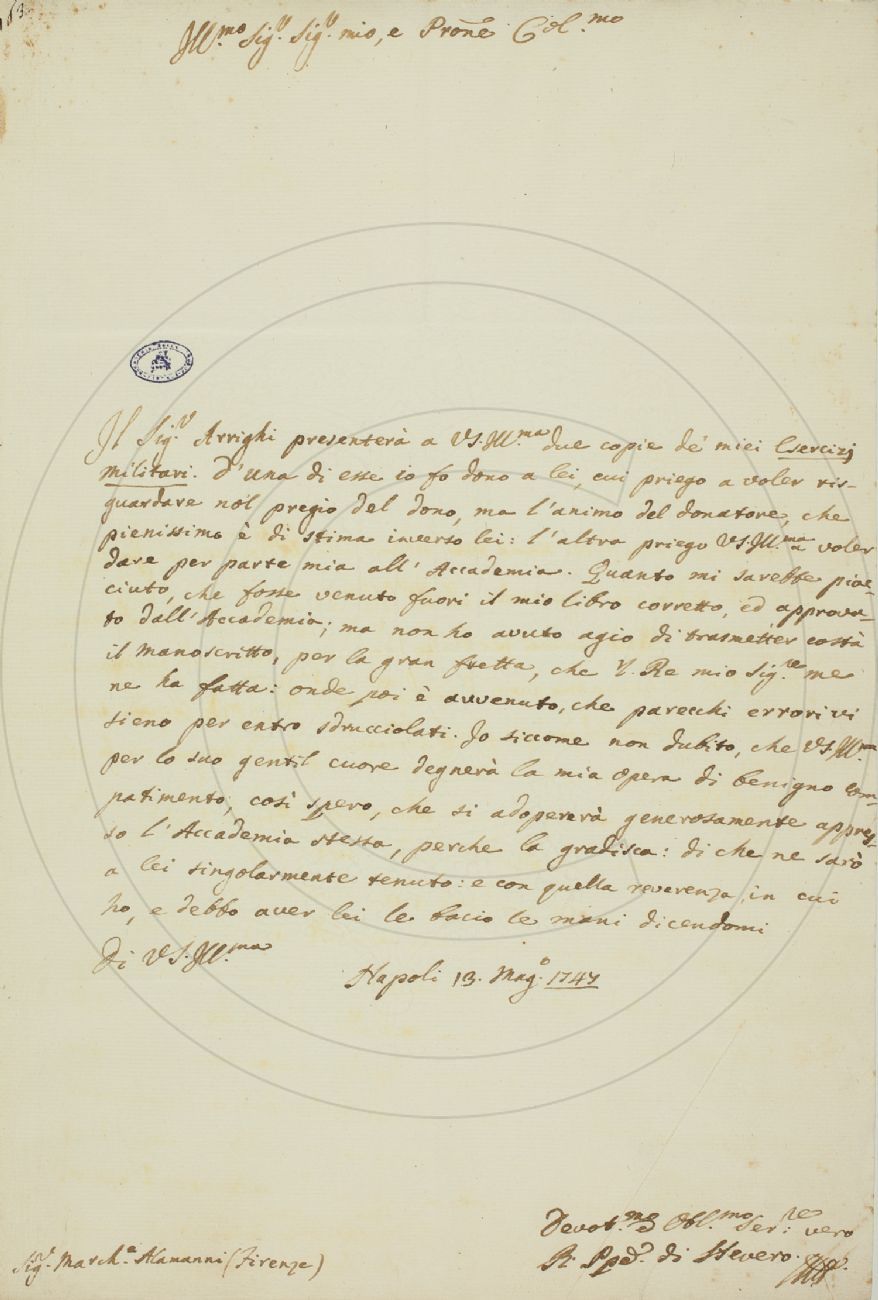 Ill.mo Sig.r Sig.r mio, e Prone Col.mo
Il Sig.r Arrighi presenterà a VS.Ill.ma due copie de' miei Esercizj
militari. D'una di esse io fo dono a lei, cui priego a voler ris-
guardare nol pregio del dono, ma l'animo del donatore, che
pienissimo è di stima inverso lei: l'altra priego VS.Ill.ma a voler
dare per parte mia all'Accademia. Quanto mi sarebbe piac-
ciuto, che fosse venuto fuori il mio libro corretto, ed approva-
to dall'Accademia; ma non ho avuto agio di trasmetter costà
il manoscritto, per la gran fretta, che il Re mio Sig.re me
ne ha fatta: onde poi è avvenuto, che parecchi errori vi
sieno per entro sdrucciolati. Io siccome non dubito, che VS.Ill.ma
per lo suo gentil cuore degnerà la mia opera di benigno com-
patimento, così spero, che si adopererà generosamente appres-
so l'Accademia stessa, perche la gradisca: di che ne sarò
a lei singolarmente tenuto: e con quella reverenza in cui
ho, e debbo aver lei le bacio le mani dicendomi
Di VS.Ill.ma
Napoli 13. Mag.o 1747
Devot.mo ed Obl.mo Ser.re vero
di Severo
Sig.r March.e Alamanni (Firenze)